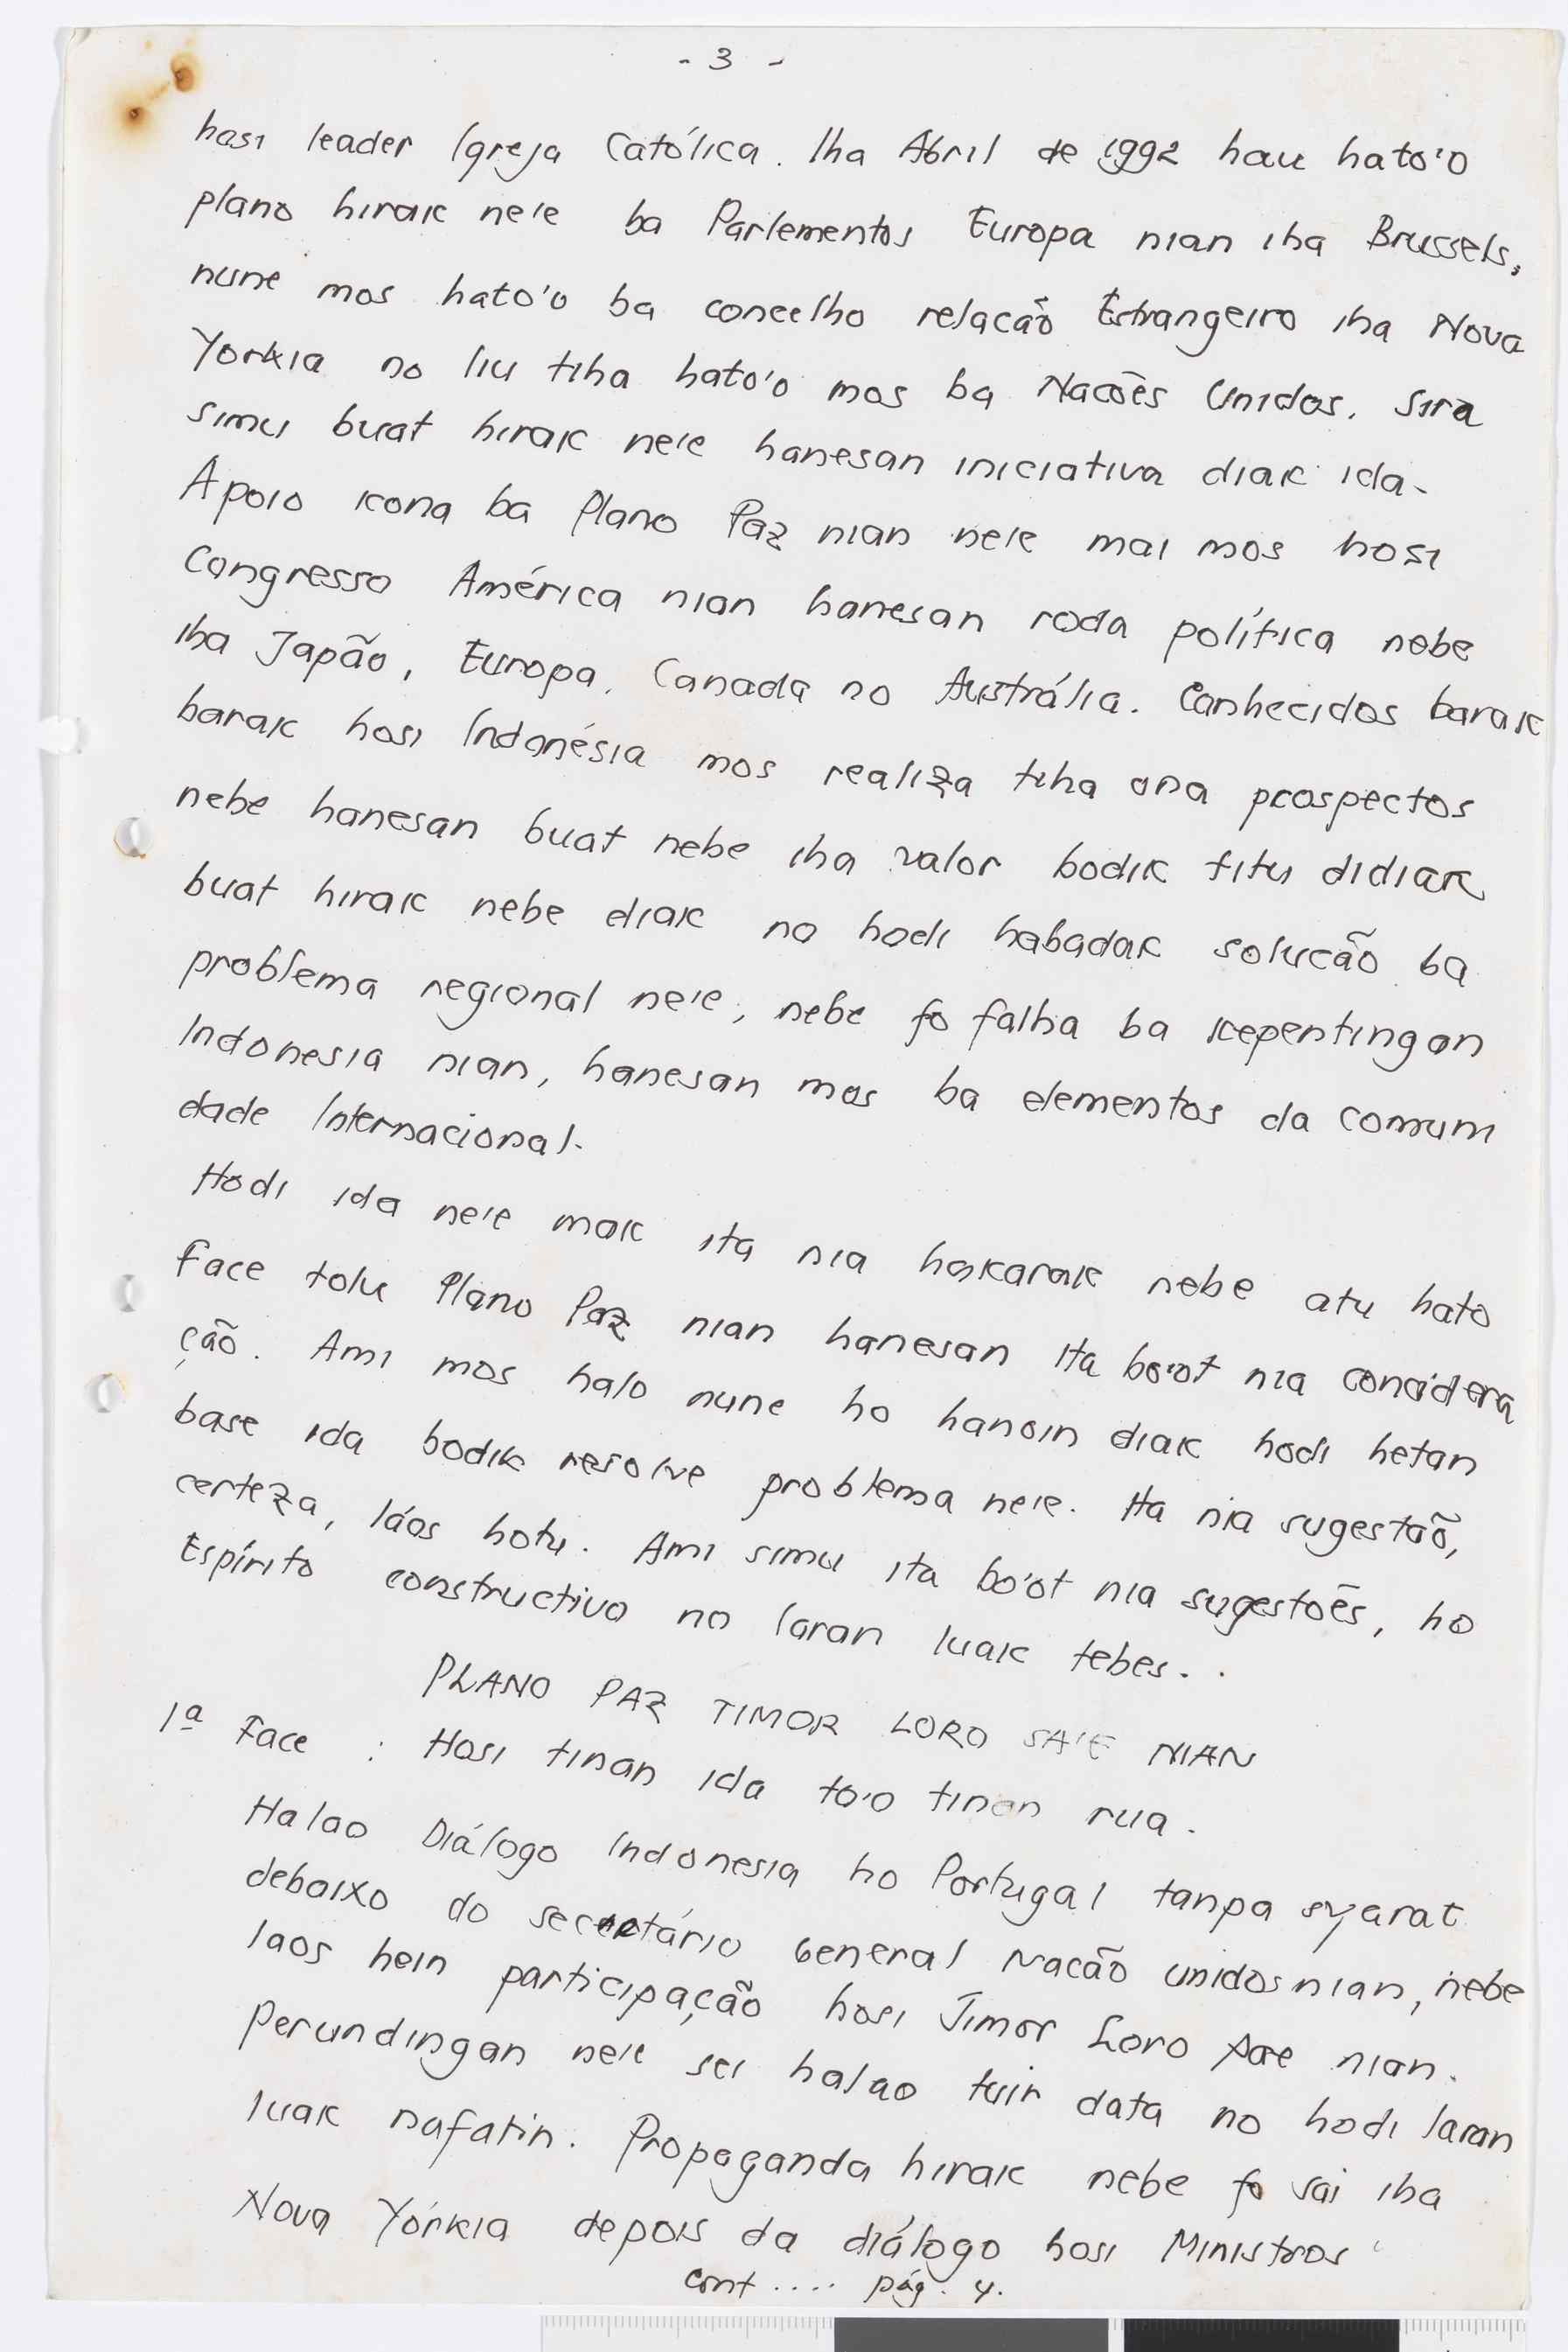 - 3 -
hosi leader Igreja Católica. Iha Abril de 1992 hau hato'o
plano hirak ne'e ba Parlementos Europa nian iha Brussels,
nune mos hato'o ba concelho relacão Estrangeiro iha Nova
Yorkia no liu tiha hato'o mos ba Nacões Unidos. Sira
simu buat hirak ne'e hanesan iniciativa diak ida.
Apoio kona ba Plano Paz nian ne'e mai mos hosi
Congresso América nian hanesan roda política nebe
iha Japão, Europa, Canada no Austrália. Conhecidos barak
barak hosi Indonésia mos realiza tiha ona prospectos
nebe hanesan buat nebe iha valor bodik titu didiak
buat hirak nebe diak no hodi habadak solucão ba
problema regional ne'e, nebe fo falha ba kepentingan
Indonesia nian, hanesan mos ba elementos da comuni
dade Internacional.
Hodi ida ne'e mak ita nia hakarak nebe atu hato
face tolu Plano Paz nian hanesan Ita bo'ot nia considera
ção. Ami mos halo nune ho hanoin diak hodi hetan
base ida bodik resolve problema ne'e. Ita nia sugestaõ,
certeza, láos hotu. Ami simu ita bo'ot nia sugestoẽs, ho
Espírito constructivo no laran luak tebes. .
PLANO PAZ TIMOR LORO SA'E NIAN
1ª Face : Hosi tinan ida to'o tinan rua.
Halao Diálogo Indonesia ho Portugal tanpa syarat
debaixo do secretário General Nacão unidos nian, nebe
laos hein participação hosi Timor Loro sae nian.
Perundingan ne'e sei halao tuir data no hodi laran
luak nafatin. Propaganda hirak nebe fo sai iha
Nova Yórkia depois da diálogo hosi Ministros
cont .... pág. 4.